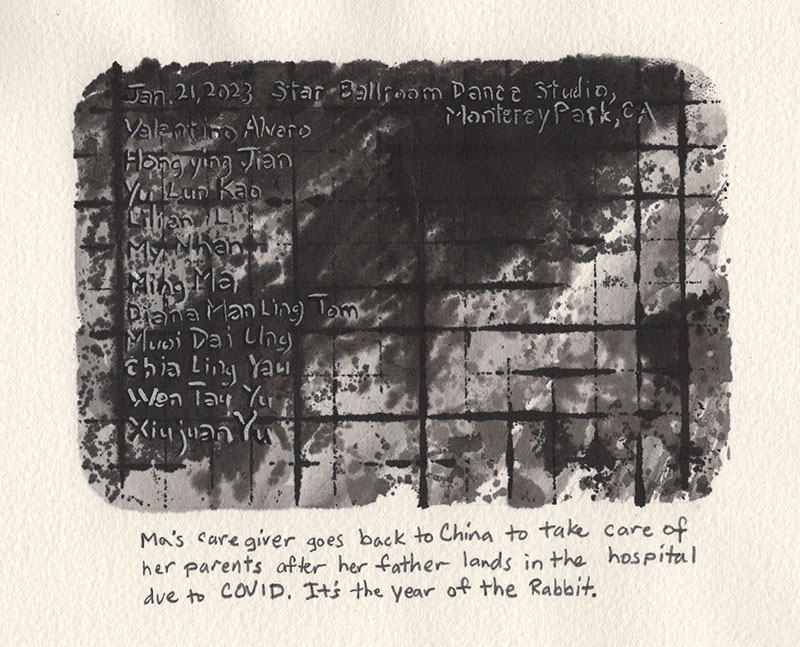 Jan. 21, 2023 Star Ballroom Dance Studio,
Monterey Park, CA
Valentino Alvaro
Hong ying Jian
Yu Lun Kao
Lilian Li
My Nhan
Ming Ma
Diana Man Ling Tom
Muoi Dai Ung
Chia Ling Yau
Wen Tau Yu
Xiujuan Yu
Ma's caregiver goes back to China to take care of
her parents after her father lands in the hospital
due to COVID. It's the year of the Rabbit.